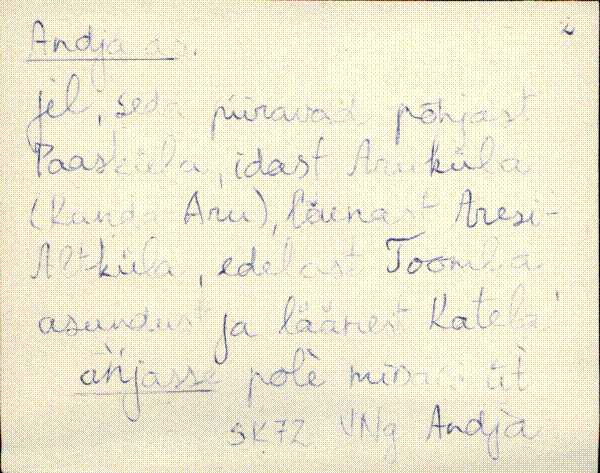 Andja as.
jël, seda piiravad põhjast
Paasküla, idast Aruküla
(Kunda Aru), lõunast Aresi-
Altküla, edelast Toomla
asundust ja läänest Katela
än̆jasse polè midagi üt
SK72 VNg Andja